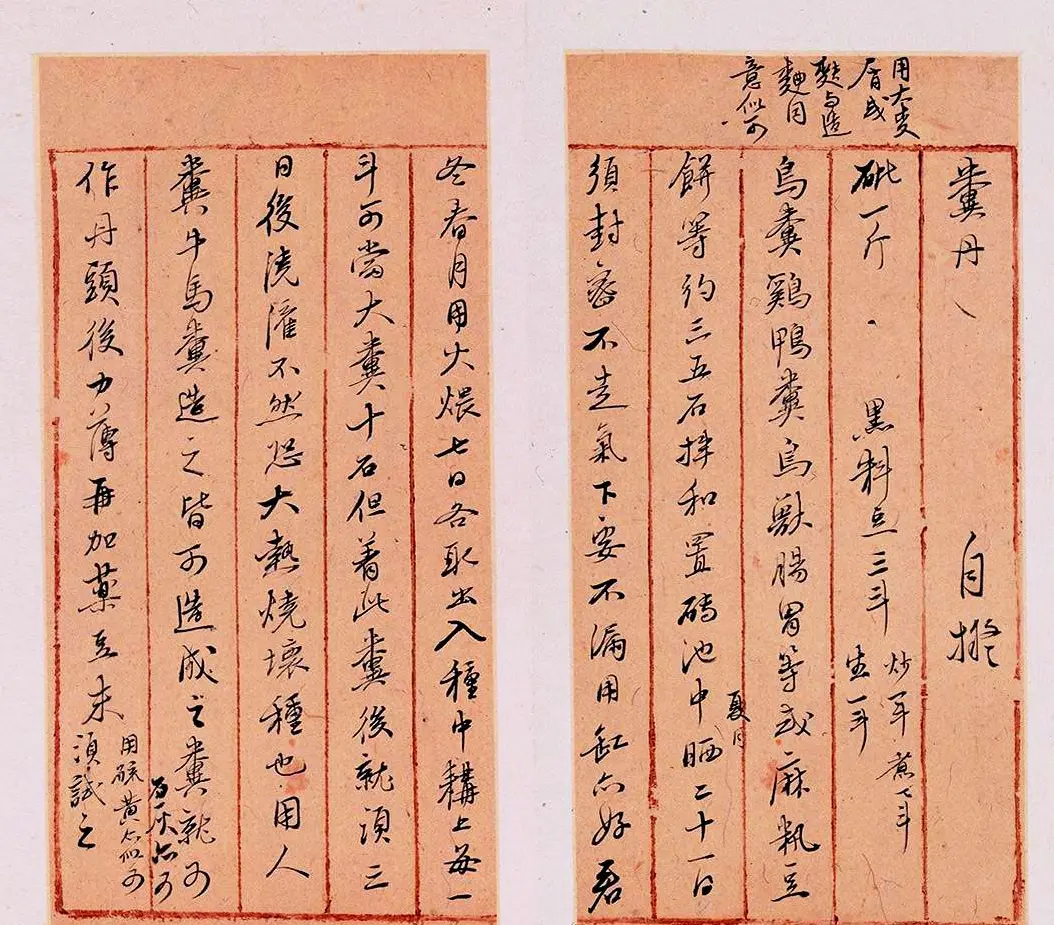 糞丹 自擬
砒一斤 黑料豆三斗 炒一斗 煮一斗 生一斗
鳥糞鷄鴨糞鳥獸腸胃等或麻籸豆
餅等約三五石拌和置磚池中晒二十一日
夏月
須封密不走氣下要不漏用缸亦好若
用大麥
屑或
麩与造
麯同
意似可
冬春月用火煨七日各取出入種中耩上每一
斗可當大糞十石但着此糞後就須三
日後澆灌不然恐大熱燒壞種也用人
糞牛馬糞造之皆可造成之糞就可
作丹頭後力薄再加藥豆末 須試之
用硫黃亦似可
石灰亦可